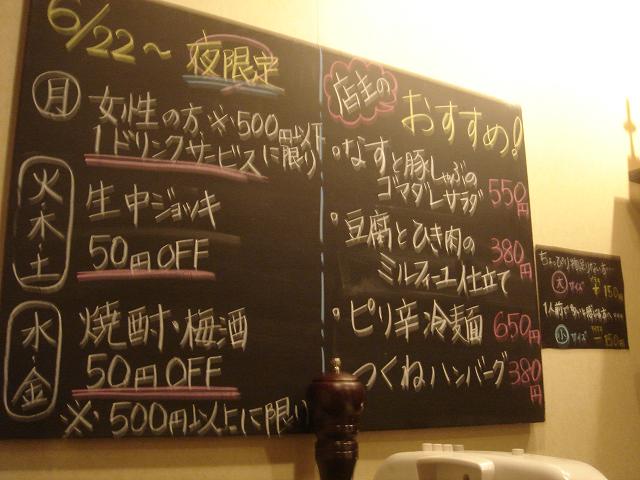 6/22～ 夜限定
月
女性の方 ※500円以下に限り
1ドリンクサービス
火・木・土
生中ジョッキ
50円OFF
水・金
焼酎・梅酒
50円OFF
※500円以上に限り
店主の
おすすめ!
・なすと豚しゃぶの
ゴマダレサラダ 550円
・豆腐とひき肉の
ミルフィーユ仕立て 380円
・ピリ辛冷麺 650円
つくねハンバーグ 380円
ちょっぴり物足りない方…
大 サイズ 150円
1人前で
小 サイズ 150円